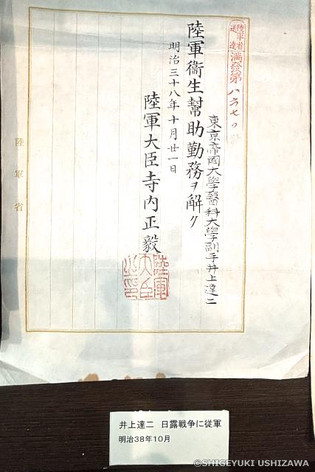 陸軍省送達
満發第八六七〇
東京帝國大學醫科大學副手井上達二
陸軍衞生幇助勤務ヲ解ク
明治三十八年十月廿一日
陸軍大臣寺内正毅
陸軍大臣之印
陸軍省
井上達二 日露戦争に従軍
明治38年10月
©SHIGEYUKI USHIZAWA